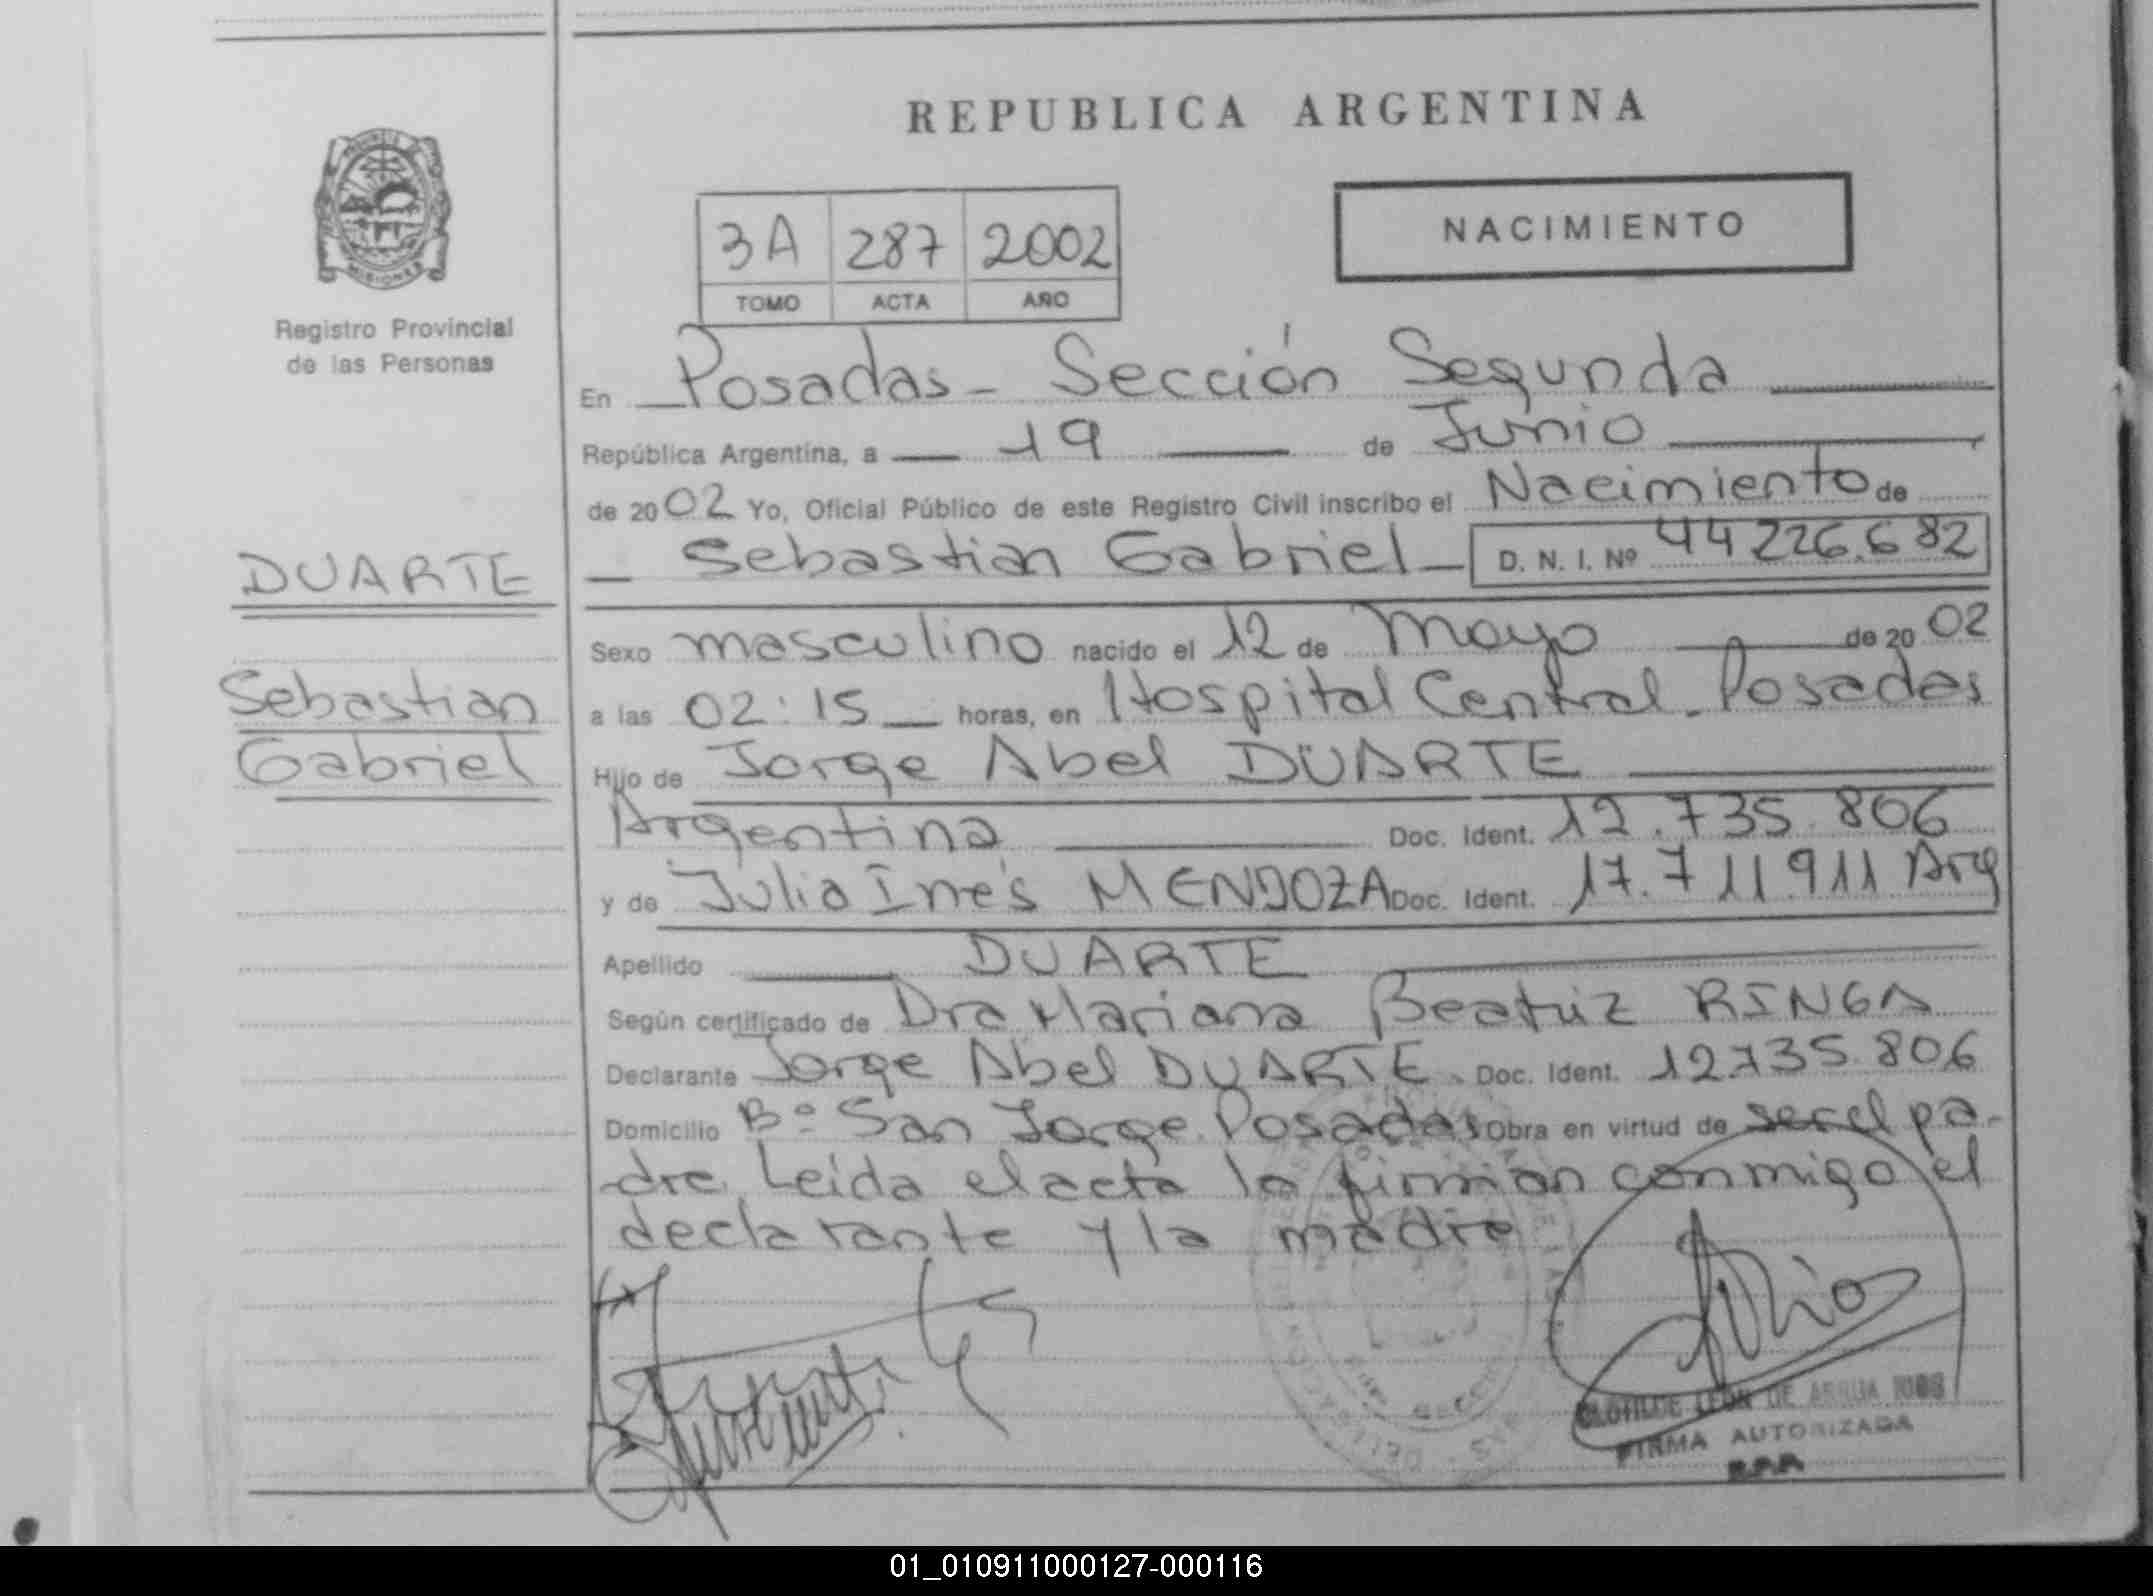 REPUBLICA ARGENTINA
NACIMIENTO
3A 287 2002
TOMO ACTA AÑO
MISIONES
Registro Provincial
de las Personas
DUARTE
Sebastian
Gabriel
En Posadas - Sección Segunda
República Argentina, a 19 de Junio
de 2002 Yo, Oficial Público de este Registro Civil inscribo el Nacimiento de
Sebastian Gabriel D. N. I. Nº 44 226.682
Sexo masculino nacido el 12 de Mayo de 2002
a las 02:15 horas, en Hospital Central - Posadas
Hijo de Jorge Abel DUARTE
Argentina Doc. Ident. 12.735.806
y de Julia Inés MENDOZA Doc. Ident. 17.711911 Arg
Apellido DUARTE
Según certificado de Dra Mariana Beatriz RINGA
Declarante Jorge Abel DUARTE. Doc. Ident. 12735.806
Domicilio Bº San Jorge. Posadas Obra en virtud de ser el pa-
dre. Leida el acta la firman conmigo el
declarante y la madre
CLOTILDE LEON DE
FIRMA AUTORIZADA
R.P.P.
01_010911000127-000116